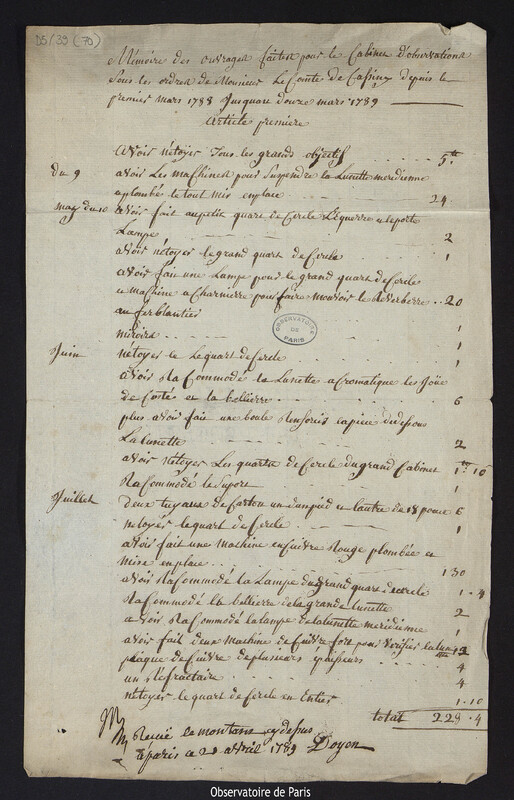 D5/39 (70)
Mémoire des ouvrages faitest pour le Cabinet d'observations
Sous les ordres de Monsieur Le Comte de Cassiny depuis le
premier mars 1788 Jusquau douze mars 1789
Article premiere
avoir nétoyer Tous les grands objectif 5 tt
du 9 avoir Les machines pour suspendre la Lunette meridienne
aplombés le tout mis enplace 24
may du 10 avoir fait aupetit quart de Cercle L'équerre a
Lampe 2
avoir nétoyer le grand quart de Cercle 1
avoir fait une Lampe pour le grand quart de Cercle
a Charnierre pour faire mouvoir le Reverberre 20
au ferblantier
miroirs 1
OBSERVATOIRE DE PARIS
Juin nétoyer le quart de Cercle 1
avoir Racommodé la Lunette acromatique les
de Cortés et la bellierre 6
plus avoir fait une boule
La Lunette 2
avoir nétoyer Les quarts de Cercle du grand Cabinet 1 10
Racommodé le suport 1
Juillet deux tuyaux de Carton un danpied et lautre de 18 pouce 6
nétoyer le quart de Cercle 1
avoir fait une machine en Cuivre Rouge plombée et
mise enplace 130
avoir Racommodé la Lampe du grand quart de cercle 1 4
Racommodé la bellierre de la grande Lunette 2
avoir Racommodé la lampe de la lunette meridienne 1
avoir fait deux machine de Cuivre fort pour vérifier
plaque de Cuivre de plusieurs épaisseurs 4
un Réfractaire 4
nétoyer le quart de Cercle en Entier 1 10
total 229 4
Recue le montant cy dessus
à paris ce 20 avril 1789 Doyen
Observatoire de Paris